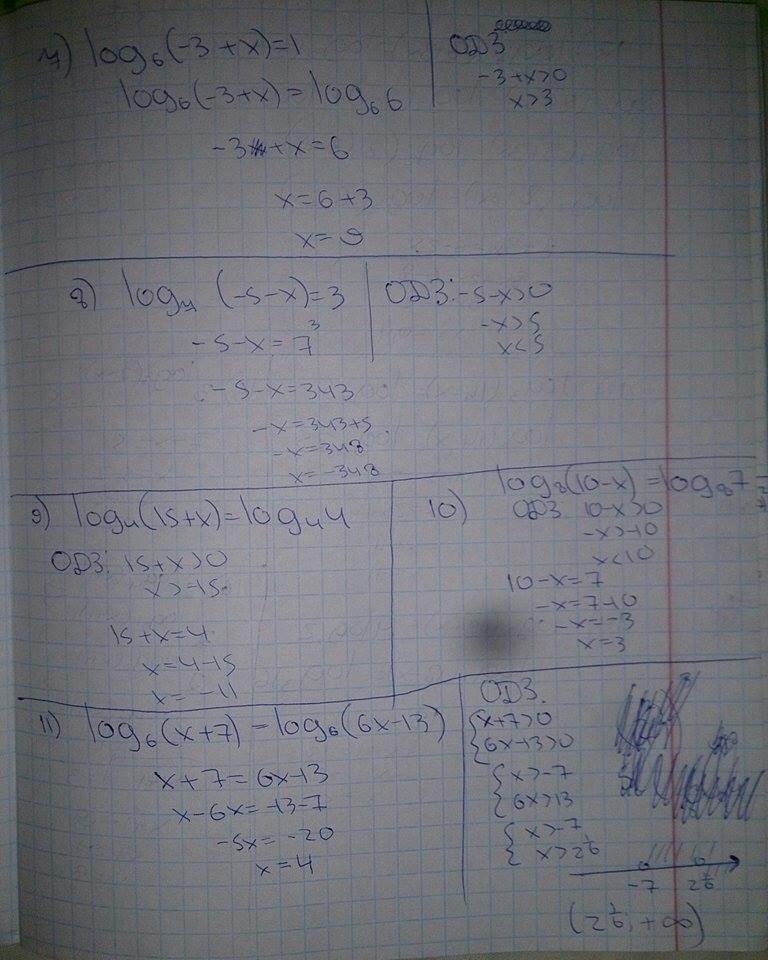 7) log₆(-3+x)=1
log₆(-3+x)=log₆6
-3+x=6
x=6+3
x=9
ОДЗ
-3+x>0
x>3
8) log₇(-5-x)=3
-5-x=7³
-5-x=343
-x=343+5
-x=348
x=-348
ОДЗ: -5-x>0
-x>5
x<5
9) log₄(15+x)=log₄4
ОДЗ: 15+x>0
x>-15
15+x=4
x=4-15
x=-11
10) log₈(10-x)=log₈7
ОДЗ 10-x>0
-x>-10
x<10
10-x=7
-x=7-10
-x=-3
x=3
11) log₆(x+7)=log₆(6x-13)
x+7=6x-13
x-6x=-13-7
-5x=-20
x=4
ОДЗ.
{x+7>0
{6x-13>0
{x>-7
{6x>13
{x>-7
{x>2 1/6
-7 2 1/6
(2 1/6; +∞)